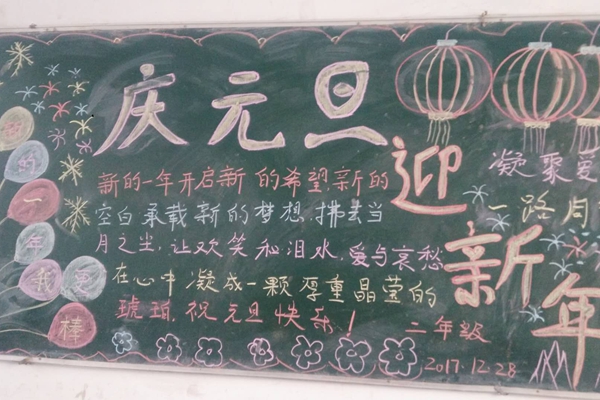 庆元旦
新的一年开启新的希望,新的
空白承载新的梦想。拂去当
月之尘,让欢笑和泪水,爱与哀愁
在心中凝成一颗厚重晶莹的
琥珀,祝元旦快乐!
二年级
2017.12.28
迎新年
凝聚爱
一路同
的
一
年
我
爱
棒